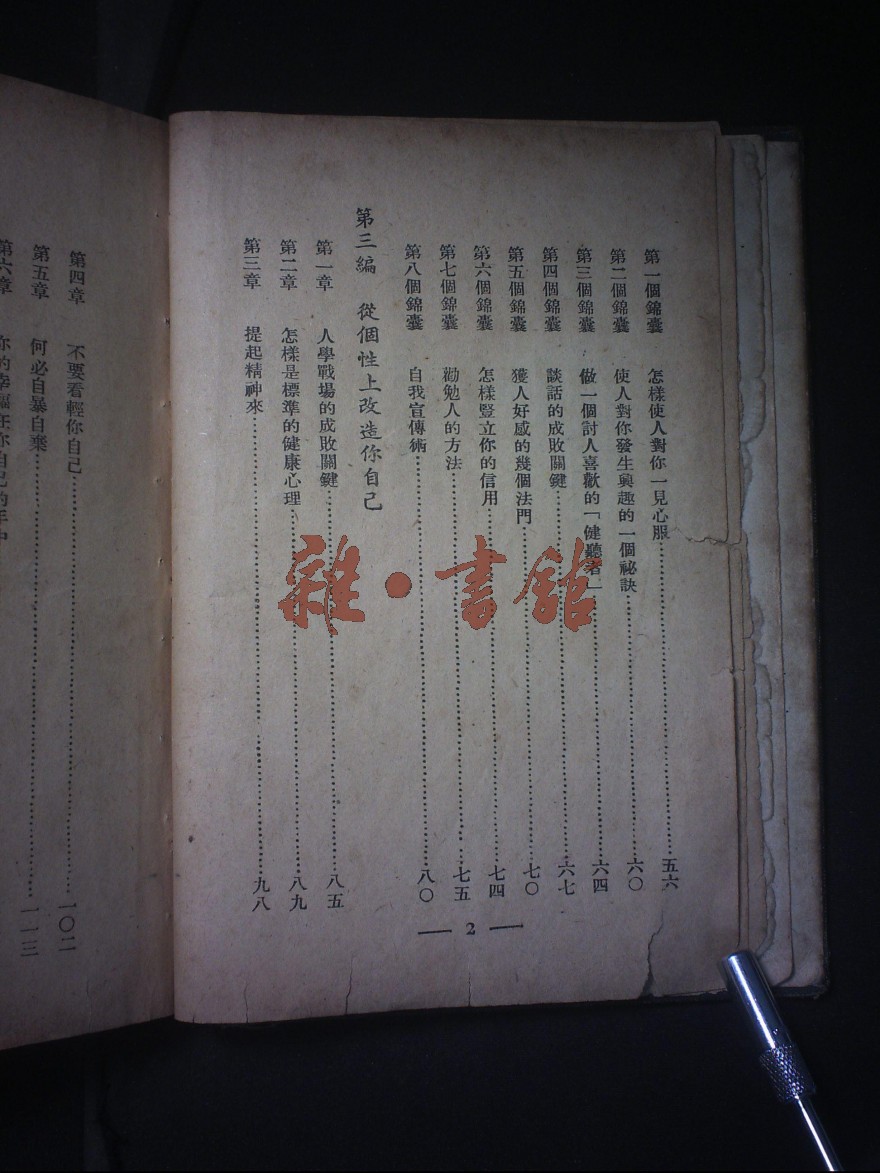 第一個錦囊 怎樣使人對你一見心服……五六
第二個錦囊 使人對你發生興趣的一個祕訣……六〇
第三個錦囊 做一個討人喜歡的「健聽者」……六四
第四個錦囊 談話的成敗關鍵……六七
第五個錦囊 獲人好感的幾個法門……七〇
第六個錦囊 怎樣豎立你的信用……七四
第七個錦囊 勸勉人的方法……七五
第八個錦囊 自我宣傳術……八〇
第三編 從個性上改造你自己
第一章 人學戰場的成敗關鍵……八五
第二章 怎樣是標準的健康心理……八九
第三章 提起精神來……九八
— 2 —
第四章 不要看輕你自己……一〇二
第五章 何必自暴自棄……一一三
第六章 你的幸福在你自己的手中
雜·書館